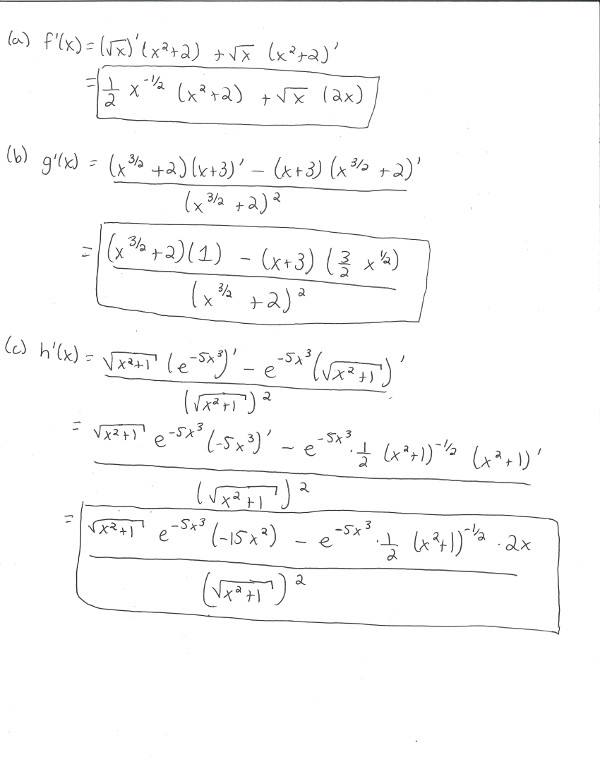 (a) f'(x) = (√x)'(x²+2) + √x (x²+2)'
= 1/2 x^(-1/2) (x²+2) + √x (2x)
(b) g'(x) = ((x^(3/2) +2)(x+3)' - (x+3)(x^(3/2) +2)') / (x^(3/2) +2)²
= ((x^(3/2) +2)(1) - (x+3)(3/2 x^(1/2))) / (x^(3/2) +2)²
(c) h'(x) = (√(x²+1) (e^(-5x³))' - e^(-5x³)(√(x²+1))') / (√(x²+1))²
= (√(x²+1) e^(-5x³)(-5x³)' - e^(-5x³) · 1/2 (x²+1)^(-1/2) (x²+1)') / (√(x²+1))²
= (√(x²+1) e^(-5x³)(-15x²) - e^(-5x³) · 1/2 (x²+1)^(-1/2) · 2x) / (√(x²+1))²